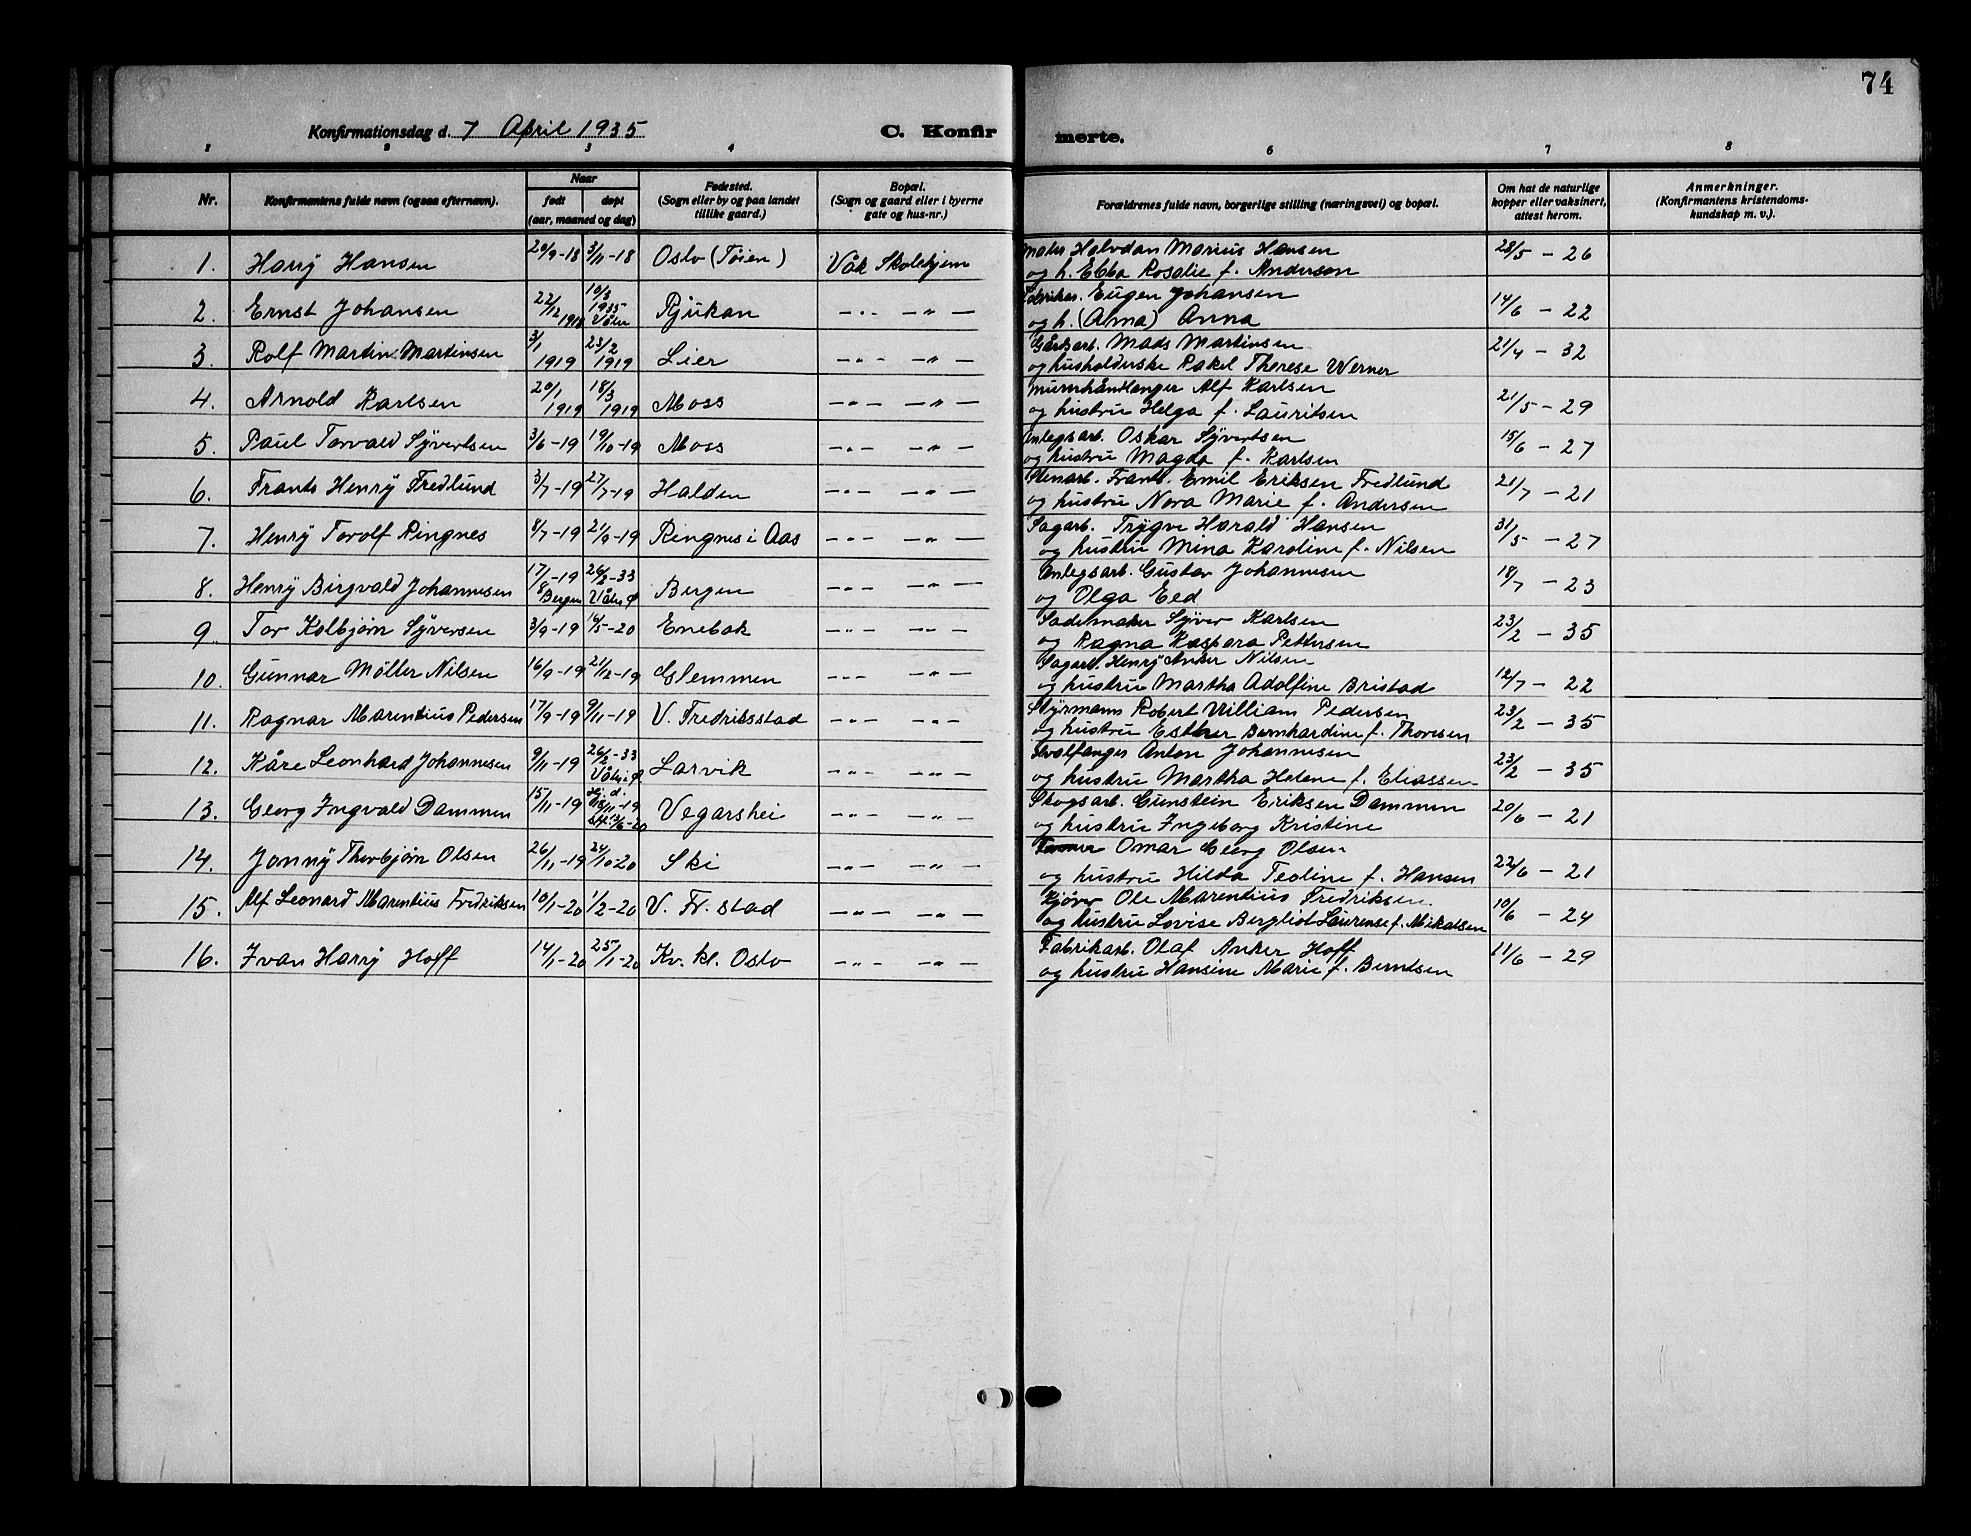 74
Konfirmationsdag d. 7 April 1935
C. Konfirmerte.
1 2 3 4 6 7 8
Nr.
Konfirmantens fulde navn (ogsaa efternavn).
Naar
født døpt
(aar, maaned og dag)
Fødested.
(Sogn eller by og paa landet
tillike gaard.)
Bopæl.
(Sogn og gaard eller i byerne
gate og hus-nr.)
Forældrenes fulde navn, borgerlige stilling (næringsvei) og bopæl.
Om hat de naturlige
kopper eller vaksinert,
attest herom.
Anmerkninger.
(Konfirmantens kristendoms-
kundskap m. v.).
1. Harry Hansen 20/9-18 3/11-18 Oslo (Tøien) Våk Skolehjem Maler Halvdan Marius Hansen 28/5 - 26
og h. Ebba Rosalie f. Anderson
2. Ernst Johansen 22/12 1918 10/3 1935 Våler Rjukan -"- -"- Eugen Johansen 14/6 - 22
og h. (Alma) Anna
3. Rolf Martin Martinsen 3/1 1919 23/2 1919 Lier -"- -"- Gårdsarb. Mads Martinsen 21/4 - 32
og husholderske Rakel Therese Werner
4. Arnold Karlsen 20/1 1919 18/3 1919 Moss -"- -"- Murerhåndlanger Alf Karlsen 21/5 - 29
og hustru Helga f. Lauritsen
5. Paul Torvald Syvertsen 3/6-19 19/10-19 Moss -"- -"- Anlegsarb. Oskar Syvertsen 15/6 - 27
og hustru Magda f. Karlsen
6. Frants Henry Fredlund 3/7-19 27/7-19 Halden -"- -"- Stenarb. Frants Emil Eriksen Fredlund 21/7 - 21
og hustru Nora Marie f. Andersen
7. Henry Torolf Ringnes 8/7-19 21/9-19 Ringnes i Aas -"- -"- Sagarb. Trygve Harald Hansen 31/5 - 27
og hustru Mina Karoline f. Nilsen
8. Henry Birgvald Johannesen 17/8-19 Bergen 26/2-33 Våler Ø Bergen -"- -"- Anlegsarb. Gustav Johannesen 18/7 - 23
og Olga Eed
9. Tor Kolbjørn Syversen 3/9-19 16/5-20 Enebak -"- -"- Sadelmaker Syver Karlsen 23/2 - 35
og Ragna Kaspara Pettersen
10. Gunnar Møller Nilsen 16/9-19 21/12-19 Glemmen -"- -"- Sagarb. Henry Anker Nilsen 12/7 - 22
og hustru Martha Adolfine Bristad
11. Ragnar Marentius Pedersen 17/9-19 9/11-19 V. Fredriksstad -"- -"- Styrmann Robert William Pedersen 23/2 - 35
og hustru Esther Bernhardine f. Thoresen
12. Kåre Leonhard Johannesen 9/11-19 26/2-33 Våler i Ø Larvik -"- -"- Hvalfanger Anton Johannesen 23/2 - 35
og hustru Martha Helene f. Eliassen
13. Georg Ingvald Dammen 15/11-19 Hj. d. 15/11-19 st. 13/6-20 Vegarshei -"- -"- Skogsarb. Gunstein Eriksen Dammen 20/6 - 21
og hustru Ingeborg Kristine
14. Jonny Thorbjørn Olsen 26/11-19 24/10-20 Ski -"- -"- Omar Georg Olsen 22/6 - 21
og hustru Hilda Teoline f. Hansen
15. Alf Leonard Marentius Fredriksen 10/1-20 1/2-20 V. Fr. stad -"- -"- Kjører Ole Marentius Fredriksen 10/6 - 24
og hustru Lovise Bergliot Laurense f. Mikalsen
16. Ivan Harry Hoff 14/1-20 25/1-20 Kv. kl. Oslo -"- -"- Fabrikarb. Olaf Anker Hoff 11/6 - 29
og hustru Hansine Marie f. Berntsen